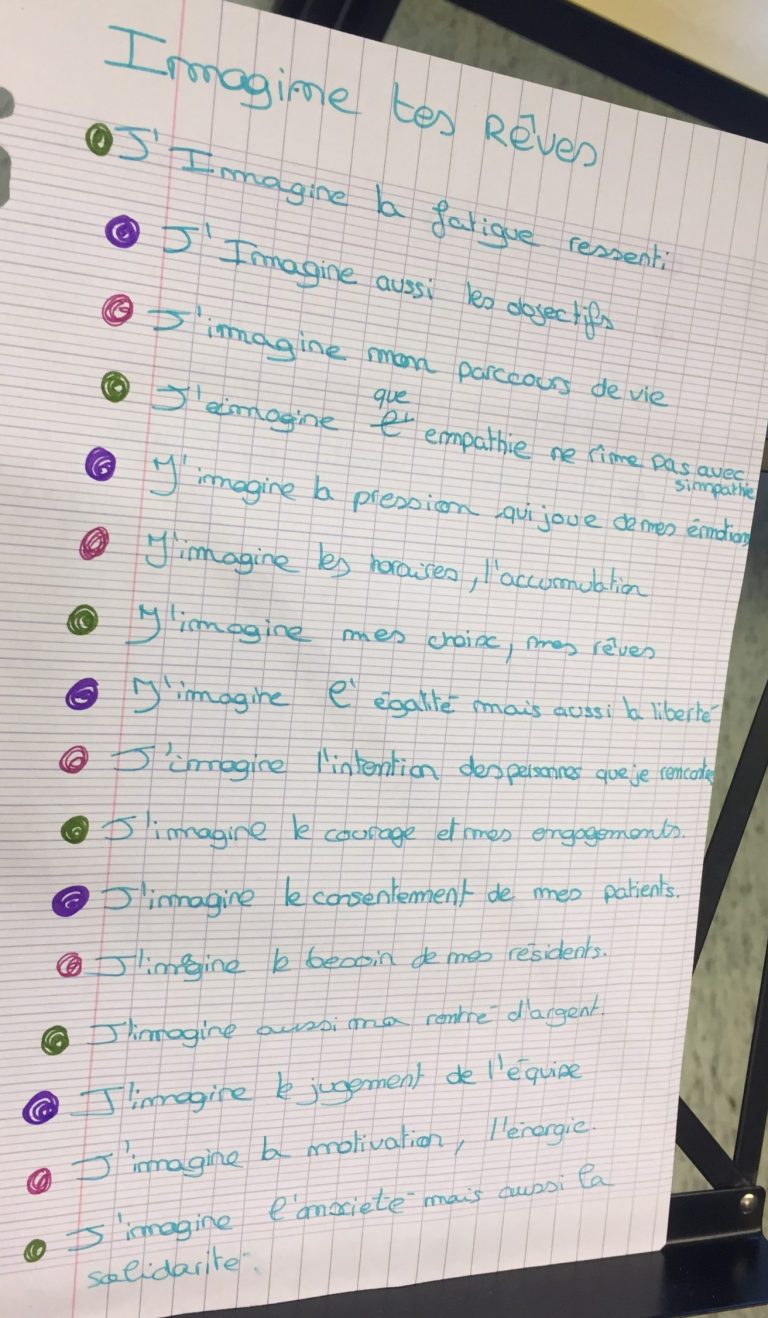 Imagine tes Rêves
J'Imagine la fatigue ressenti
J'Imagine aussi les objectifs
J'imagine mon parcours de vie
que
J'imagine et empathie ne rime pas avec
simpathie
J'imagine la pression qui joue de mes émotions
J'imagine les horaires, l'accumulation
J'imagine mes choix, mes rêves
J'imagine l'égalité mais aussi la liberté
J'imagine l'intention des personnes que je rencontre
J'imagine le courage et mes engagements.
J'imagine le consentement de mes patients.
J'imagine le besoin de mes résidents.
J'imagine aussi ma rentré d'argent.
J'imagine le jugement de l'équipe
J'imagine la motivation, l'énergie.
J'imagine l'anxieté mais aussi la
solidarité.